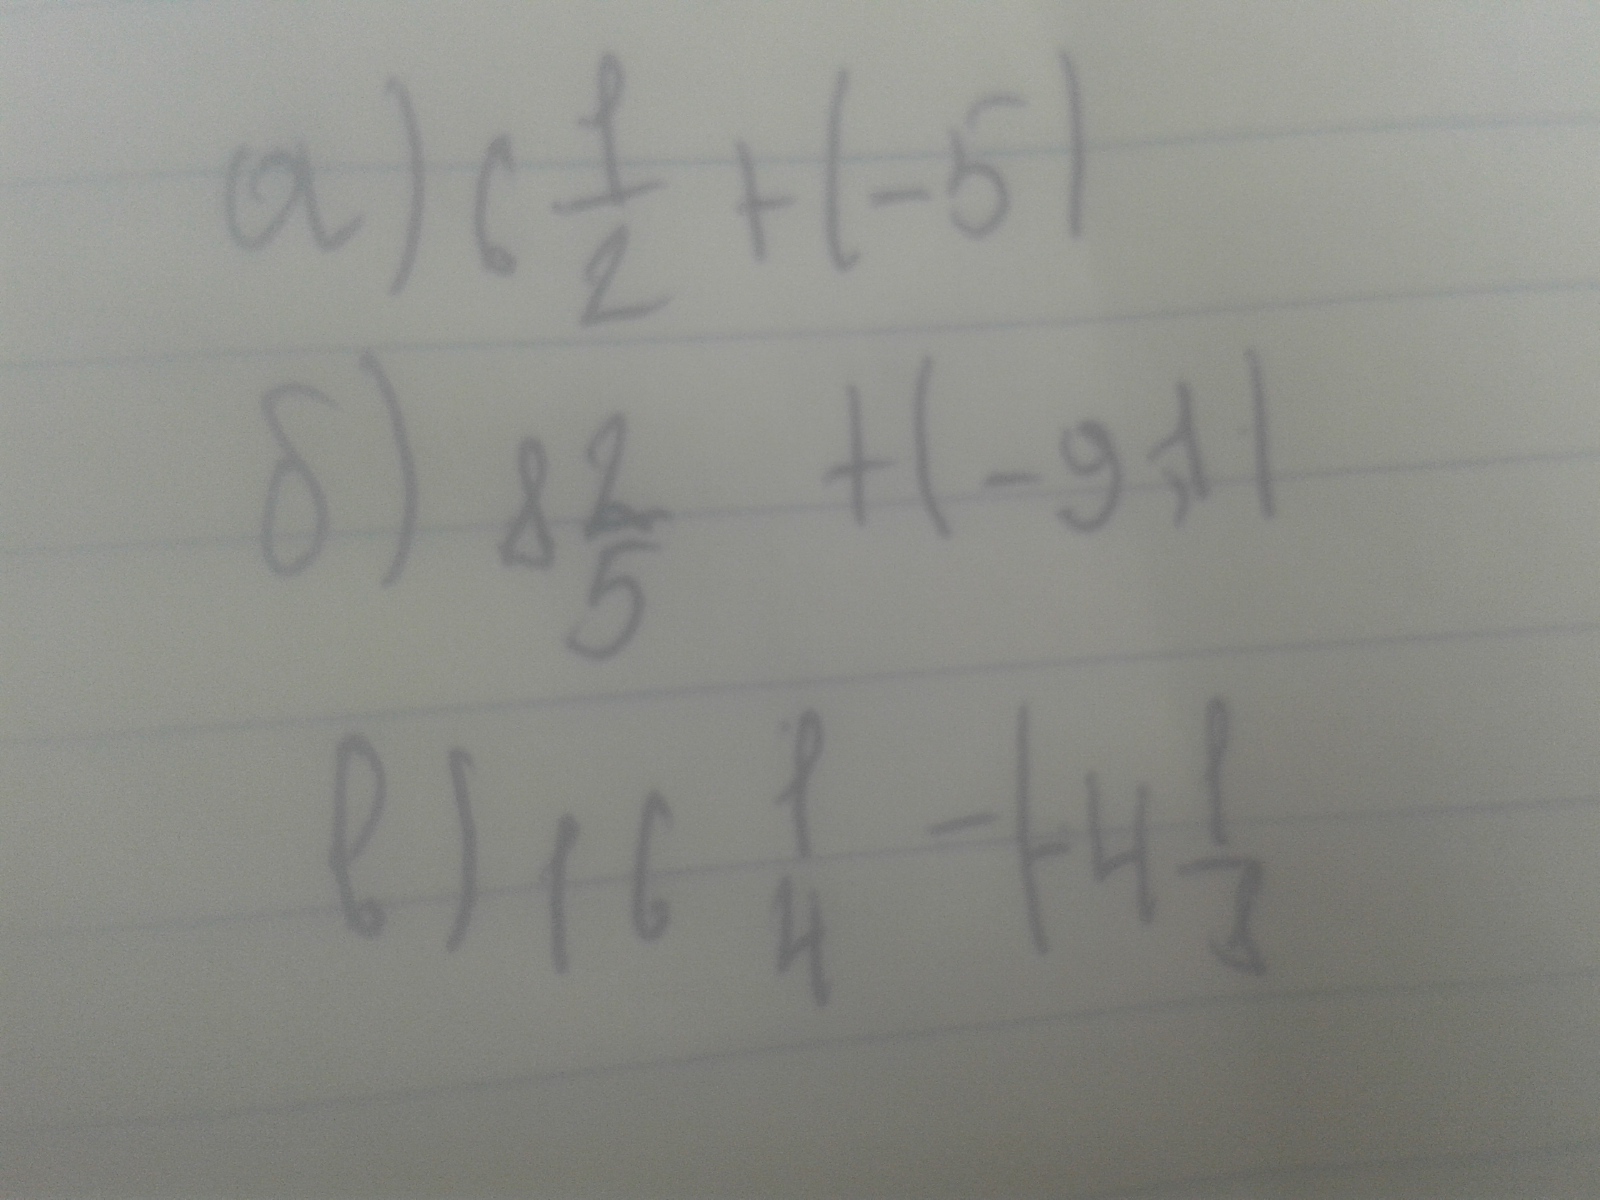 а) 6 1/2 + (-5)
б) 8 2/5 + (-9,1)
в) 16 1/4 - (-4 1/3